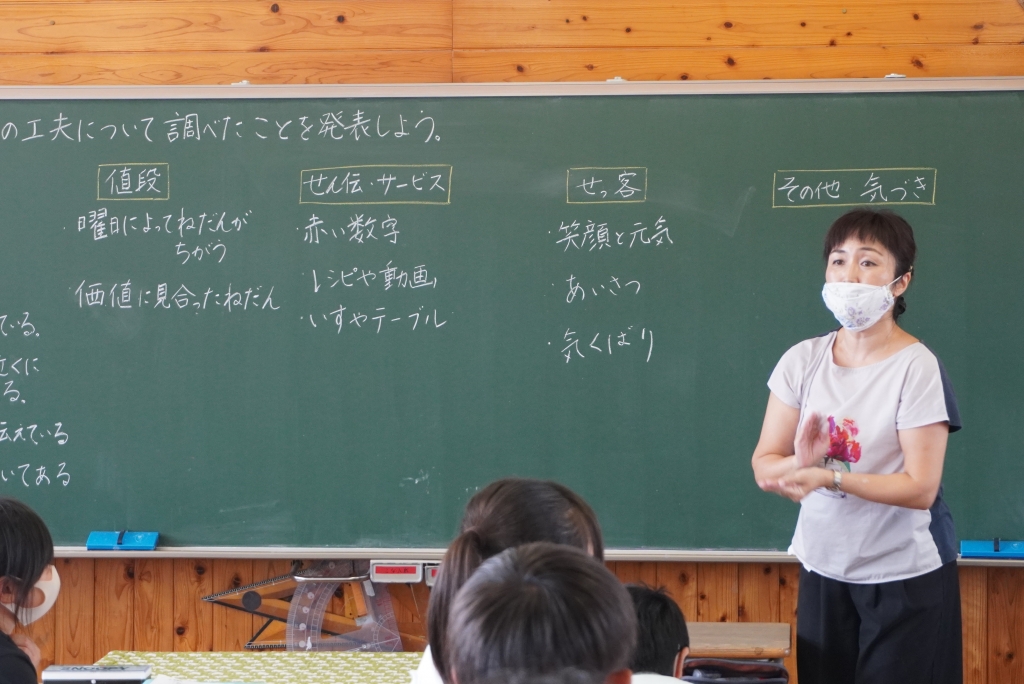 の工夫について調べたことを発表しよう。
値段
・曜日によってねだんが
ちがう
価値に見合ったねだん
せん伝・サービス
・赤い数字
レシピや動画
・いすやテーブル
せっ客
・笑顔と元気
・あいさつ
・気くばり
その他・気づき
ている。
くに
る。
伝えている
いてある